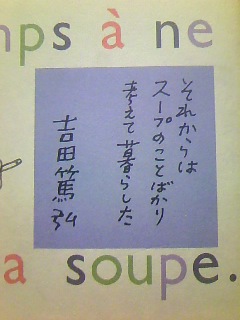 mps à ne
それからは
スープのことばかり
考えて暮らした
吉田篤弘
a soupe.